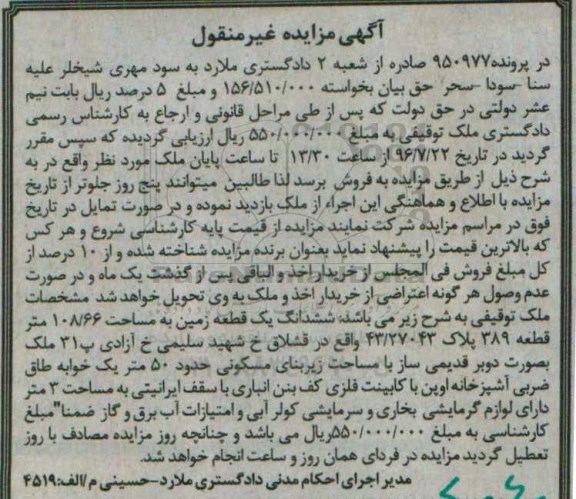 آگهی مزایده غیرمنقول
در پرونده۹۵۰۹۷۷ صادره از شعبه ۲ دادگستری ملارد به سود مهری شیخلر علیه
سنا -سودا -سحر حق بیان بخواسته ۱۵۶/۵۱۰/۰۰۰ و مبلغ ۵ درصد ریال بابت نیم
عشر دولتی در حق دولت که پس از طی مراحل قانونی و ارجاع به کارشناس رسمی
دادگستری ملک توقیفی به مبلغ ۵۵۰/۰۰۰/۰۰۰ ریال ارزیابی گردیده که سپس مقرر
گردید در تاریخ ۹۶/۷/۲۲ از ساعت ۱۳/۳۰ تا ساعت پایان ملک مورد نظر واقع در به
شرح ذیل از طریق مزایده به فروش برسد لذا طالبین میتوانند پنج روز جلوتر از تاریخ
مزایده با اطلاع و هماهنگی این اجراء از ملک بازدید نموده و در صورت تمایل در تاریخ
فوق در مراسم مزایده شرکت نمایند مزایده از قیمت پایه کارشناسی شروع و هر کس
که بالاترین قیمت را پیشنهاد نماید بعنوان برنده مزایده شناخته شده و از ۱۰ درصد از
کل مبلغ فروش فی المجلس از خریدار اخذ و الباقی پس از گذشت یک ماه و در صورت
عدم وصول هر گونه اعتراضی از خریدار اخذ و ملک به وی تحویل خواهد شد مشخصات
ملک توقیفی به شرح زیر می باشد: ششدانگ یک قطعه زمین به مساحت ۱۰۸/۶۶ متر
قطعه ۳۸۹ پلاک ۴۳/۲۷۰۴۳ واقع در قشلاق خ شهید سلیمی خ آزادی پ۳۱ ملک
بصورت دوبر قدیمی ساز با مساحت زیربنای مسکونی حدود ۵۰ متر یک خوابه طاق
ضربی آشپزخانه اوپن با کابینت فلزی کف بتن انباری با سقف ایرانیتی به مساحت ۳ متر
دارای لوازم گرمایشی بخاری و سرمایشی کولر آبی و امتیازات آب برق و گاز ضمنا"مبلغ
کارشناسی به مبلغ ۵۵۰/۰۰۰/۰۰۰ریال می باشد و چنانچه روز مزایده مصادف با روز
تعطیل گردید مزایده در فردای همان روز و ساعت انجام خواهد شد.
مدیر اجرای احکام مدنی دادگستری ملارد-حسینی م/الف:۴۵۱۹